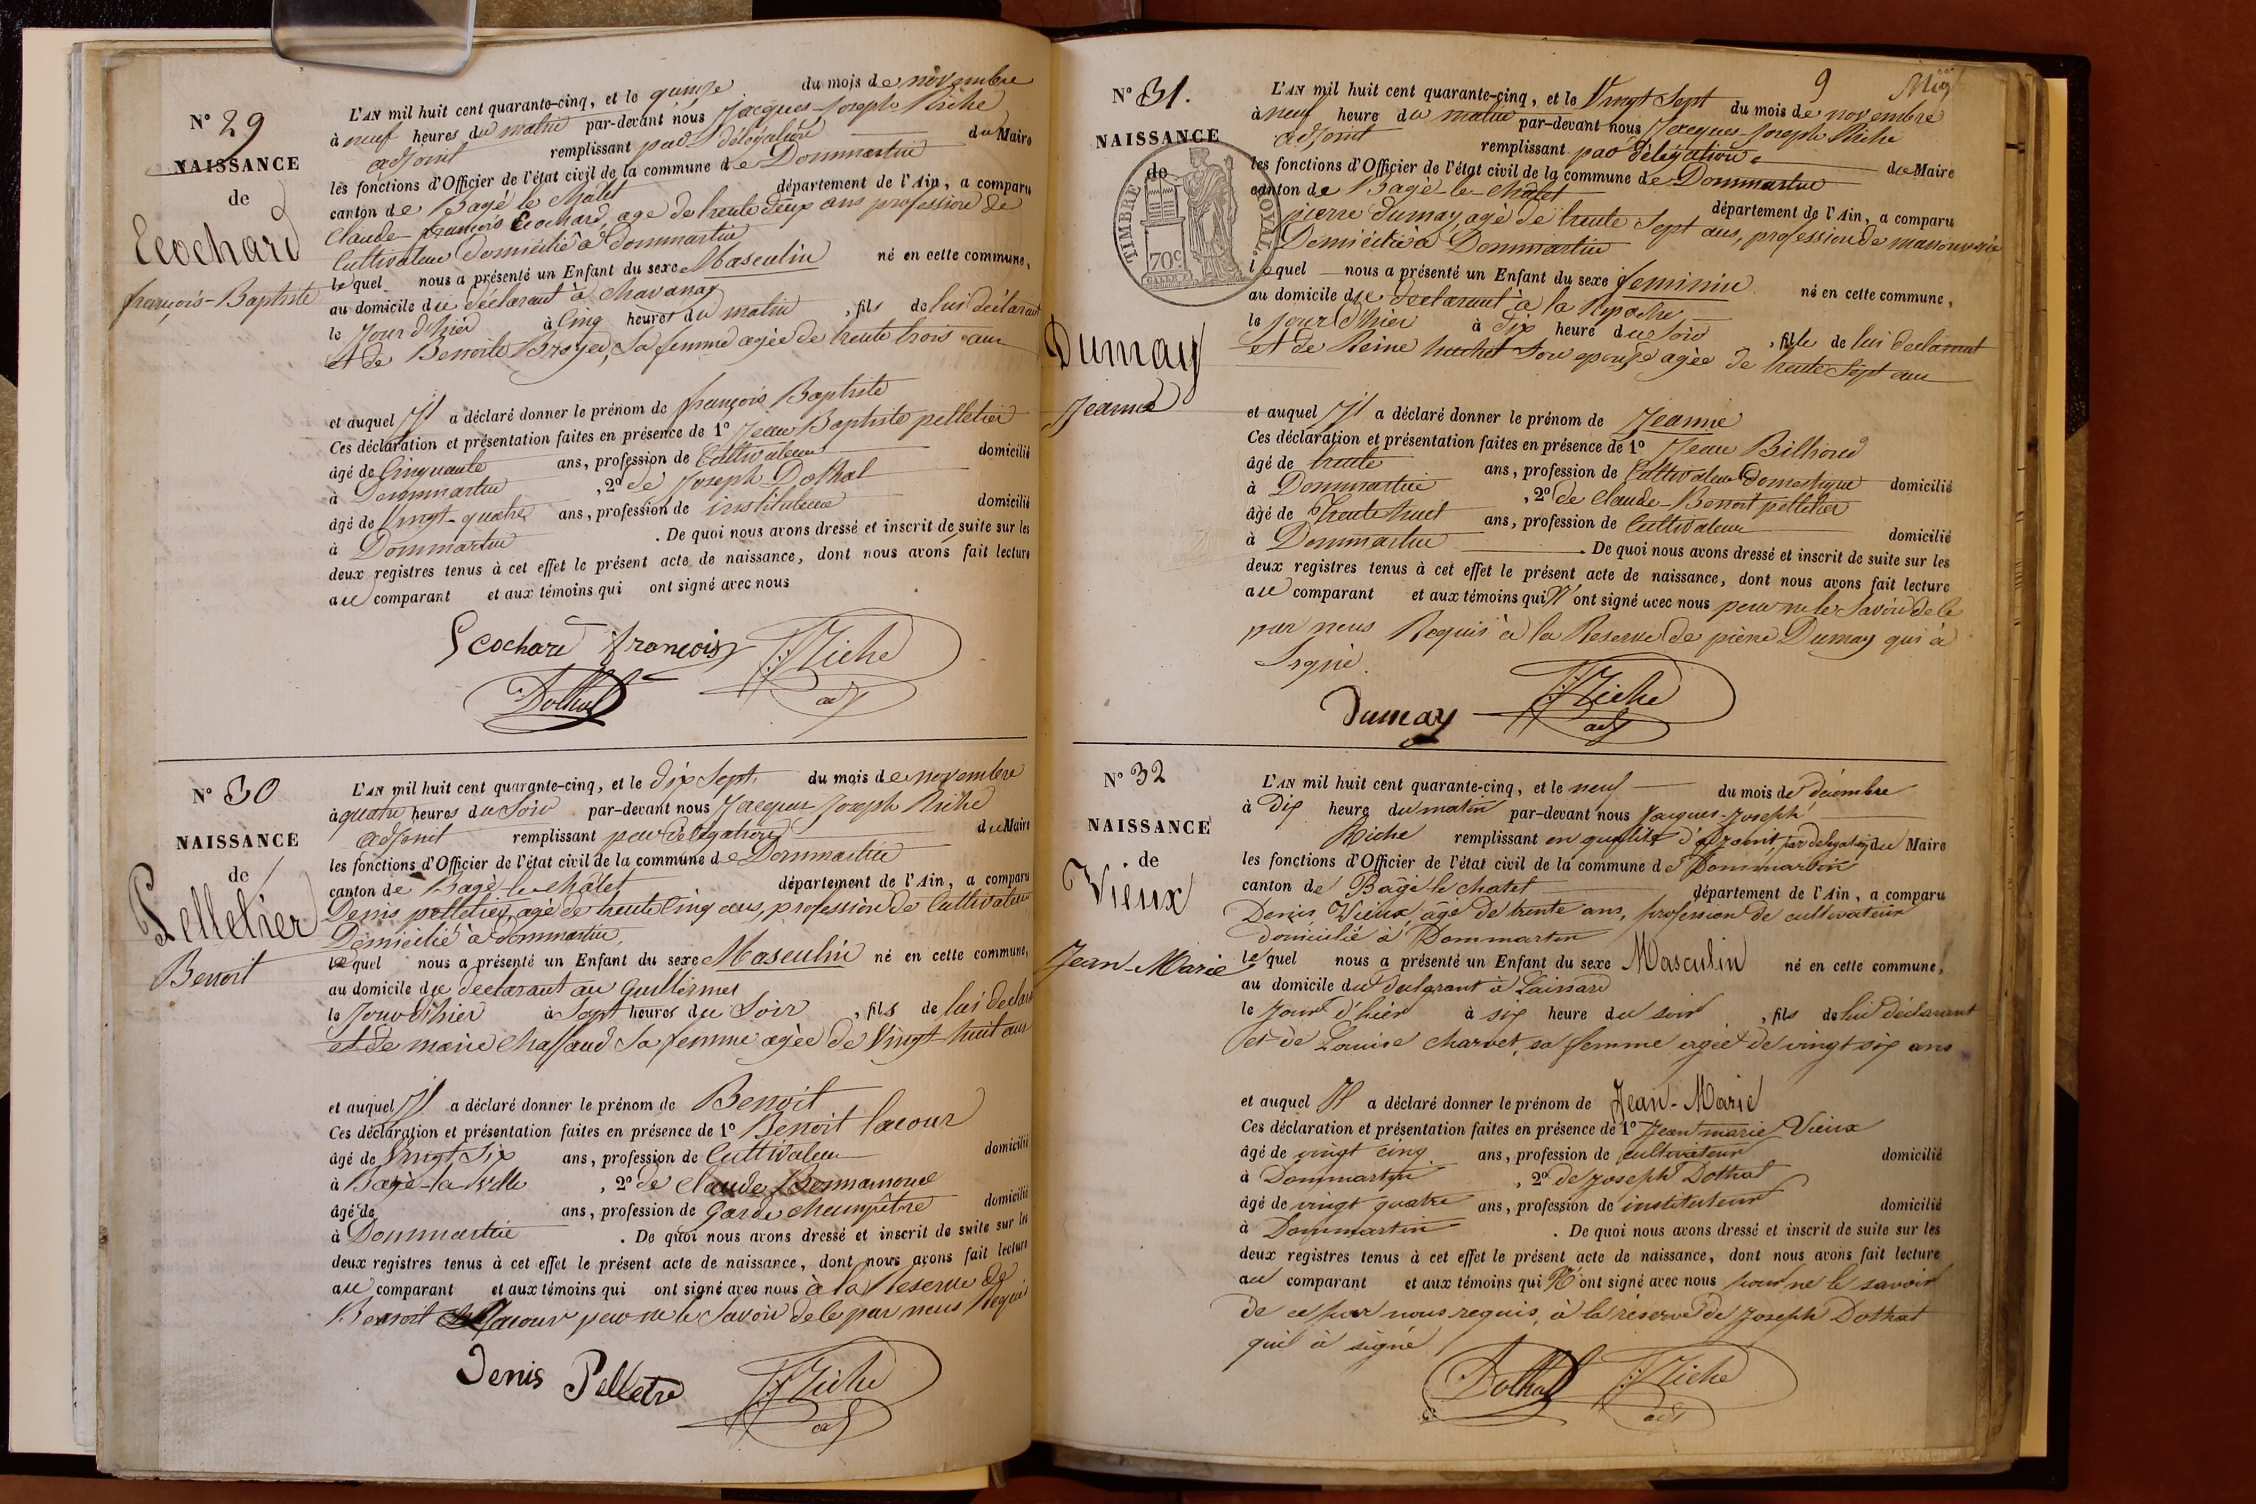 N° 29
NAISSANCE
de
Ecochard
françois-Baptiste
L'AN mil huit cent quarante-cinq, et le quinze du mois de novembre
à neuf heures du matin par-devant nous Jacques-Joseph Riche
adjoint remplissant par délégation du Maire
les fonctions d'Officier de l'état civil de la commune de Dommartin
canton de Bagé le Châtel département de l'Ain, a comparu
Claude-françois Ecochard, agé de trente deux ans profession de
Cultivateur Domicilié à Dommartin
lequel nous a présenté un Enfant du sexe Masculin né en cette commune,
au domicile du déclarant à Chavanay
le Jour d'hier à Cinq heures du matin, fils de lui déclarant
et de Benoite Broyer, sa femme agée de trente trois ans
et auquel Il a déclaré donner le prénom de françois Baptiste
Ces déclaration et présentation faites en présence de 1° Jean Baptiste pelletier
âgé de Cinquante ans, profession de Cultivateur domicilié
à Dommartin, 2° de Joseph Dothal
âgé de Vingt-quatre ans, profession de instituteur domicilié
à Dommartin. De quoi nous avons dressé et inscrit de suite sur les
deux registres tenus à cet effet le présent acte de naissance, dont nous avons fait lecture
au comparant et aux témoins qui ont signé avec nous
Ecochard françois JJRiche
Dothal adj
N° 30
NAISSANCE
de
Pelletier
Benoit
L'AN mil huit cent quarante-cinq, et le dix Sept du mois de novembre
à quatre heures du Soir par-devant nous Jacques Joseph Riche
adjoint remplissant par délégation du Maire
les fonctions d'Officier de l'état civil de la commune de Dommartin
canton de Bagé-le-châtel département de l'Ain, a comparu
Denis pelletier, agé de trente Cinq ans, profession de Cultivateur
Domicilié à Dommartin
lequel nous a présenté un Enfant du sexe Masculin né en cette commune,
au domicile du declarant au Guillermes
le Jour d'hier à Sept heures du Soir, fils de lui declarant
et de marie Chassaud sa femme agée de Vingt huit ans
et auquel Il a déclaré donner le prénom de Benoit
Ces déclaration et présentation faites en présence de 1° Benoit lacour
âgé de Vingt Six ans, profession de Cultivateur domicilié
à Bagé-la-Ville, 2° de Claude
âgé de ans, profession de Garde Champêtre domicilié
à Dommartin. De quoi nous avons dressé et inscrit de suite sur les
deux registres tenus à cet effet le présent acte de naissance, dont nous avons fait lecture
au comparant et aux témoins qui ont signé avec nous à la Reserve de
Benoit lacour pour ne le Savoir de ce par nous Requis
Denis Pelletre JJRiche
adj
9
N° 31.
NAISSANCE
de
TIMBRE ROYAL
70c
Dumay
Jeanne
L'AN mil huit cent quarante-cinq, et le Vingt Sept du mois de novembre
à neuf heure du matin par-devant nous Jacques-Joseph Riche
adjoint remplissant par délégation du Maire
les fonctions d'Officier de l'état civil de la commune de Dommartin
canton de Bagé-le-châtel département de l'Ain, a comparu
pierre Dumay, agé de trente Sept ans, profession de manouvrier
Domicilié à Dommartin
lequel nous a présenté un Enfant du sexe feminin né en cette commune,
au domicile du declarant à la
le jour d'hier à dix heure du Soir, fille de lui declarant
et de Reine huchet Son epouse agée de trente Sept ans
et auquel Il a déclaré donner le prénom de Jeanne
Ces déclaration et présentation faites en présence de 1° Jean Billioud
âgé de trente ans, profession de Cultivateur Domestique domicilié
à Dommartin, 2° de Claude-Benoit pelletier
âgé de trente huit ans, profession de Cultivateur domicilié
à Dommartin. De quoi nous avons dressé et inscrit de suite sur les
deux registres tenus à cet effet le présent acte de naissance, dont nous avons fait lecture
au comparant et aux témoins qui N'ont signé avec nous pour ne le Savoir de le
par nous Requis à la Reserve de pierre Dumay qui à
Signé.
Dumay JJRiche
adj
N° 32
NAISSANCE
de
Vieux
Jean-Marie
L'AN mil huit cent quarante-cinq, et le neuf du mois de décembre
à Dix heure du matin par-devant nous Jacques-Joseph
Riche remplissant en qualité d'adjoint par délégation du Maire
les fonctions d'Officier de l'état civil de la commune de Dommartin
canton de Bâgé le chatel département de l'Ain, a comparu
Denis Vieux, âgé de trente ans, profession de cultivateur
domicilié à Dommartin
lequel nous a présenté un Enfant du sexe Masculin né en cette commune,
au domicile du declarant à Laissard
le Jour d'hier à six heure du soir, fils de lui déclarant
et de Louise Charvet, sa femme agée de vingt six ans
et auquel Il a déclaré donner le prénom de Jean-Marie
Ces déclaration et présentation faites en présence de 1° Jean marie Vieux
âgé de vingt cinq ans, profession de cultivateur domicilié
à Dommartin, 2° de Joseph Dothal
âgé de vingt quatre ans, profession de instituteur domicilié
à Dommartin. De quoi nous avons dressé et inscrit de suite sur les
deux registres tenus à cet effet le présent acte de naissance, dont nous avons fait lecture
au comparant et aux témoins qui N'ont signé avec nous pour ne le savoir
de ce par nous requis, à la réserve de Joseph Dothal
quil à signé
Dothal JJRiche
adj